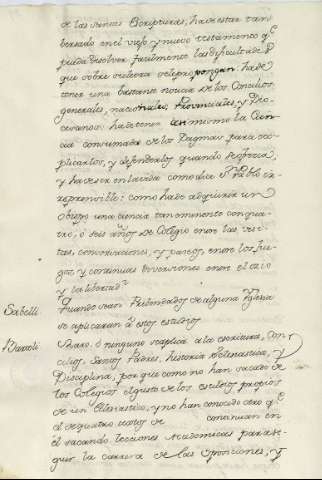 de las Santas Escripturas, ha de estar tan
versado en el viejo y nuevo testamento q.e
pueda disolver facilmente las dificultades
que sobre ellas se le propongan ha de
tener una bastante noticia de los Concilios
generales, nacionales, Provinciales, y Dio-
cesanos: ha de tener assimismo la Cien
cia consumada de los Dogmas para ex-
plicarlos, y defenderlos quando se ofrezca,
y ha de ser en la vida como dice S. Pablo ir-
reprensible: como ha de adquirir un
Obispo una ciencia tan eminente con qua-
tro, ó seis años de Colegio entre las visi-
tas, conversaciones, y paseos, entre los jue-
gos, y continuas diversiones entre el ocio
y la libertad?
Sabelli Quando sean Prebendados de alguna Yglesia
se aplicaran â estos estudios
Bartoli Raro ó ninguno se aplica â la escritura, Con-
cilios, Santos Padres, historia Eclesiastica, y
Disciplina, por que como no han sacado de
los Colegios el gusto de los estudios propios
de un Eclesiastico, y no han conocido otro q.e
el de quatro textos de continuan en
el sacando lecciones Academicas para se-
guir la carrera de las oposiciones, y